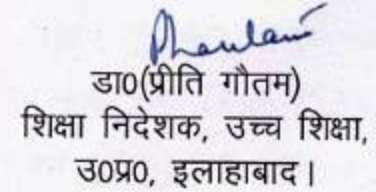 डा0(प्रीति गौतम)
शिक्षा निदेशक, उच्च शिक्षा,
उ0प्र0, इलाहाबाद।